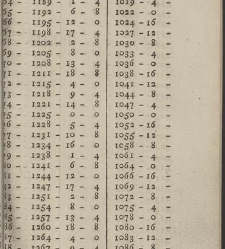 64 - 1189 - 1 - 4 1019 - 4 -
65 - 1192 - 6 - 8 1022 - 0 -
66 - 1195 - 12 - 0 1024 - 16 -
67 - 1198 - 17 - 4 1027 - 12 -
68 - 1202 - 2 - 8 1030 - 8 -
69 - 1205 - 8 - 0 1033 - 4 -
70 - 1208 - 13 - 4 1036 - 0 -
71 - 1211 - 18 - 8 1038 - 16 -
72 - 1215 - 4 - 0 1041 - 12 -
73 - 1218 - 9 - 4 1044 - 8 -
74 - 1221 - 14 - 8 1047 - 4 -
75 - 1225 - 0 - 0 1050 - 0 -
76 - 1228 - 5 - 4 1052 - 16 -
77 - 1231 - 10 - 8 1055 - 12 -
78 - 1234 - 16 - 0 1058 - 8 -
79 - 1238 - 1 - 4 1061 - 4 -
80 - 1241 - 6 - 8 1064 - 0 -
81 - 1244 - 12 - 0 1066 - 16 -
82 - 1247 - 17 - 4 1069 - 12 -
83 - 1251 - 2 - 8 1072 - 8 -
84 - 1254 - 8 - 0 1075 - 4 -
85 - 1257 - 13 - 4 1078 - 0 -
86 - 1260 - 18 - 8 1080 - 16 -
87 - 1264 - 4 - 0 1083 - 12 -
88 - 1267 - 9 - 4 1086 - 8 -